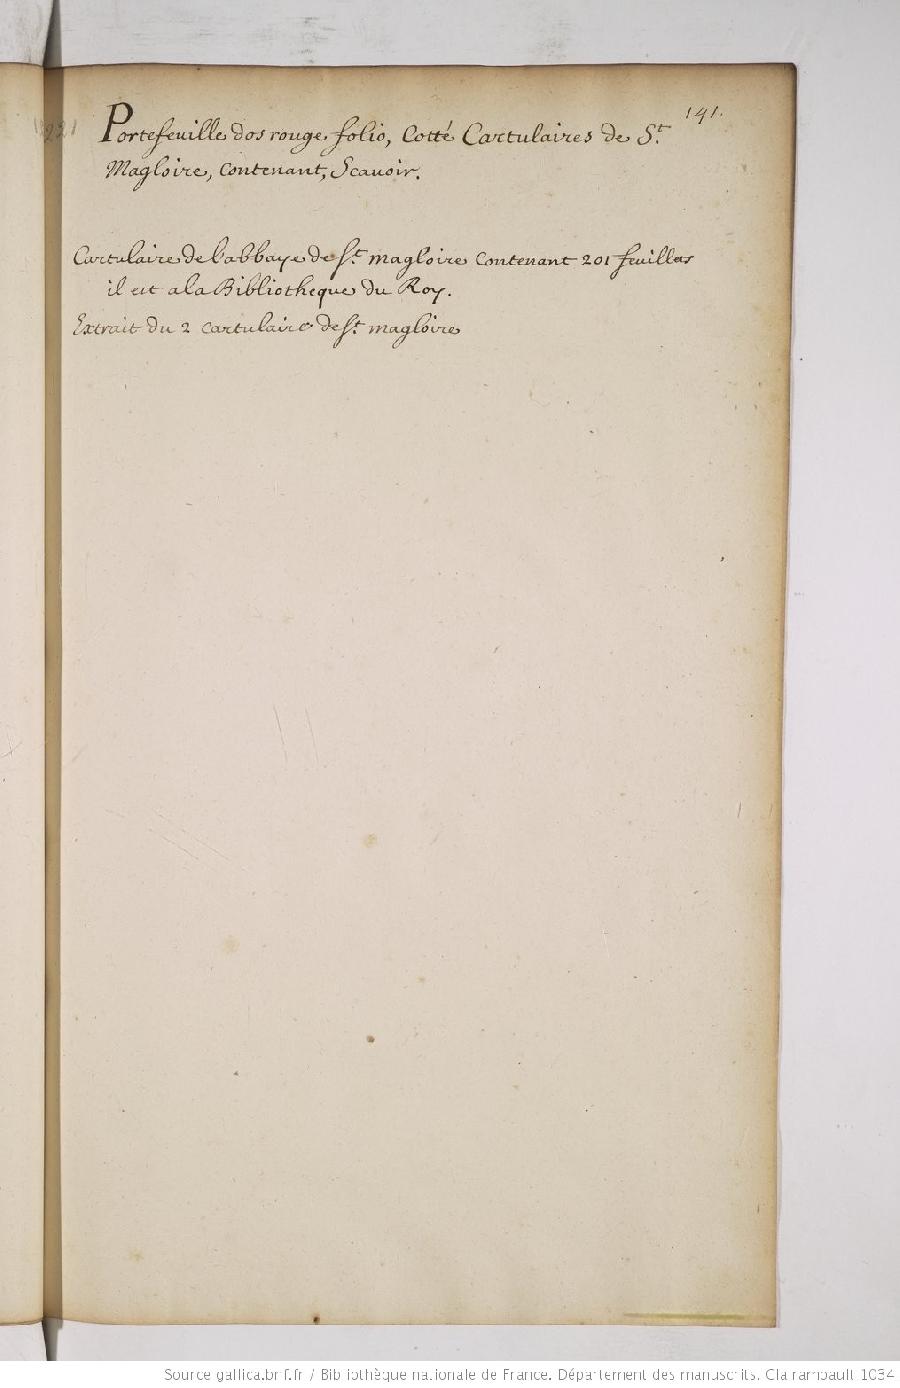 141.
221
Portefeuille dos rouge folio, Cotté Cartulaires de St.
Magloire, Contenant, Scauoir.
Cartulaire de l'abbaye de St. magloire Contenant 201 feuilles
il est a la Bibliotheque du Roy.
Extrait du 2 cartulaire de St. magloire
Source gallica.bnf.fr / Bibliothèque nationale de France. Département des manuscrits. Clairambault 1034